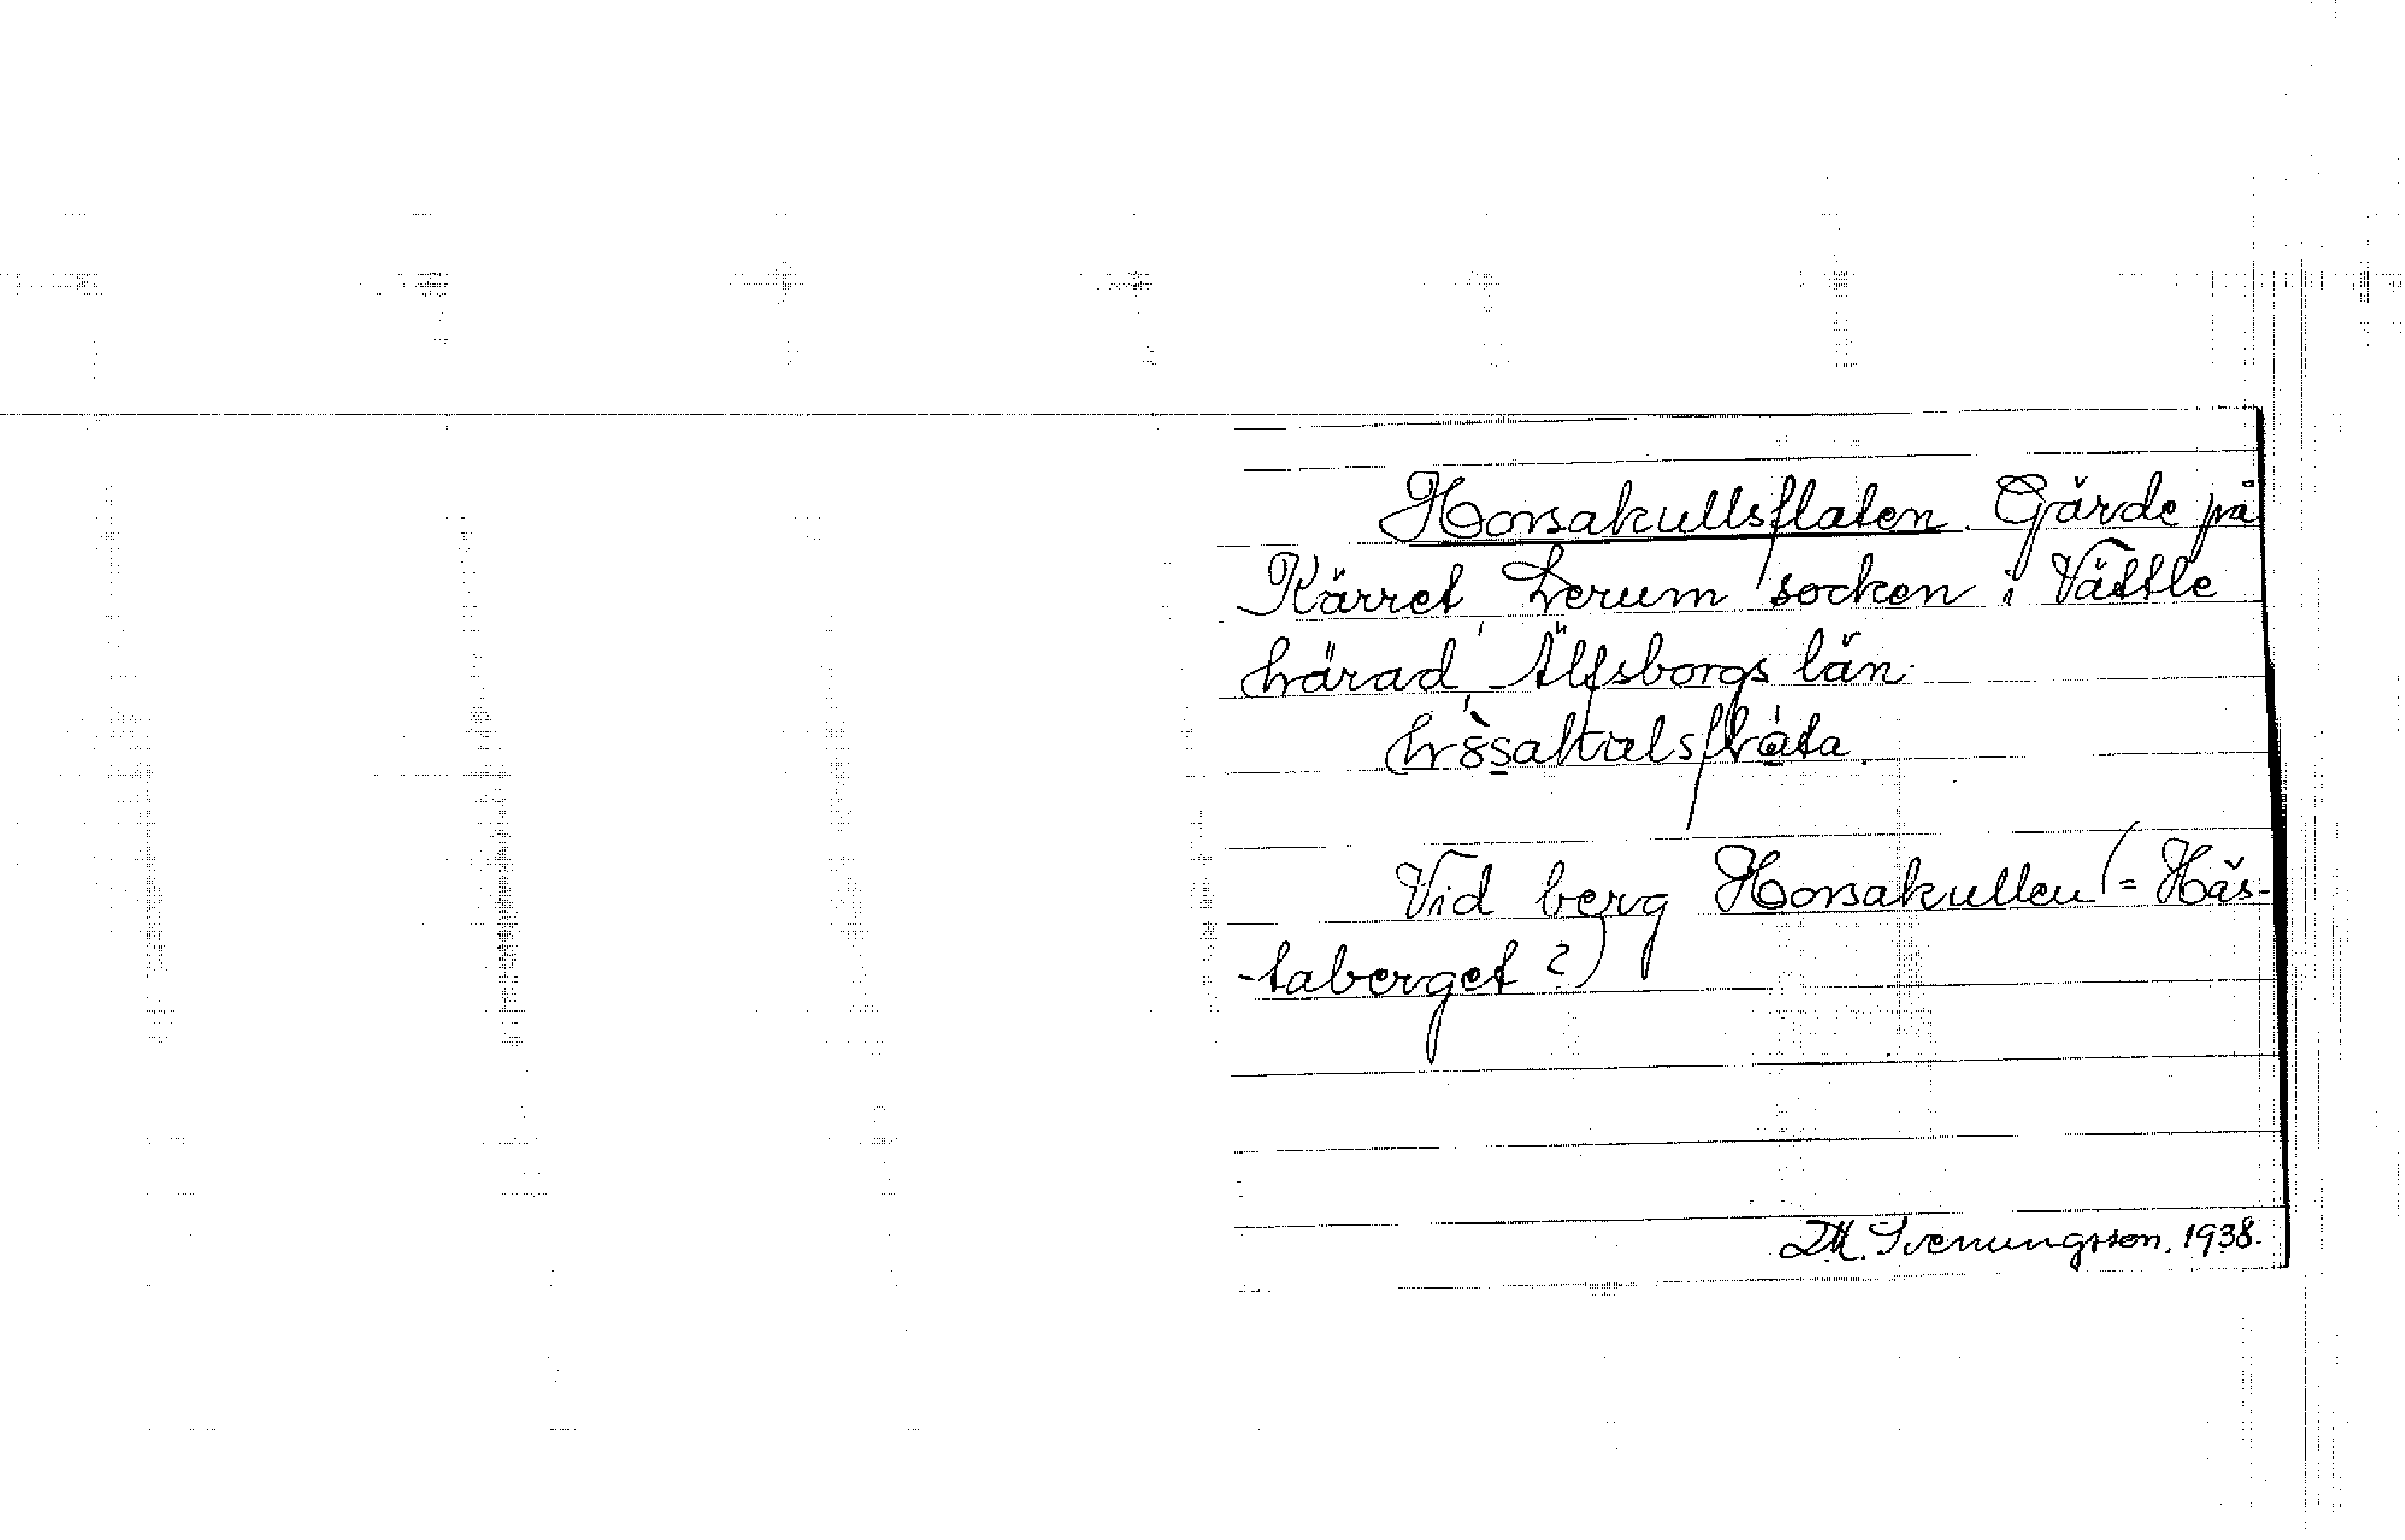 Horsakullsflaten. Gärde på
Kärret, Lerum socken i Vättle
härad, Älfsborgs län.
Vid berg Horsakullen (= Häs-
-taberget?)
D.K. Svenungsson. 1938.